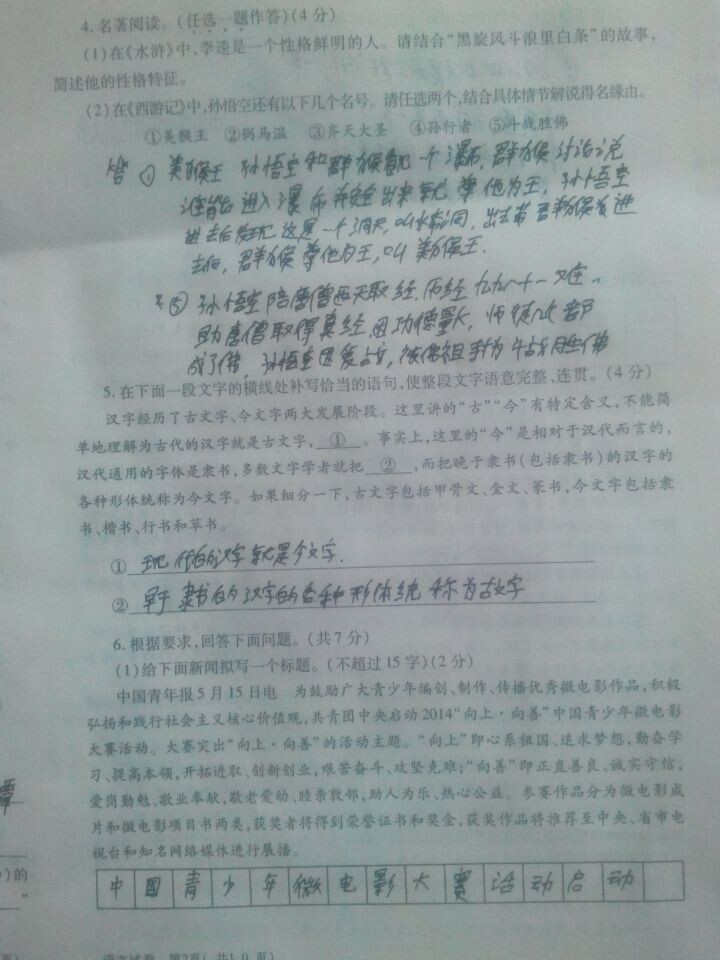 4.名著阅读。(任选一题作答)(4分)
(1)在《水浒》中,李逵是一个性格鲜明的人。请结合“黑旋风斗浪里白条”的故事,
简述他的性格特征。
(2)在《西游记》中,孙悟空还有以下几个名号。请任选两个,结合具体情节解说得名缘由。
①美猴王 ②弼马温 ③齐天大圣 ④孙行者 ⑤斗战胜佛
答 ① 美猴王 孙悟空和群猴 一个瀑布,群猴讨论说
谁能进入瀑布并安全出来就尊他为王,孙悟空
进去后发现这是一个洞天,叫水帘洞,出去带群猴 进
去后,群猴尊他为王,叫美猴王.
⑤ 孙悟空陪唐僧西天取经.历经九九八十一难、
助唐僧取得真经.因功德量大,师徒 都
成了佛,孙悟空因爱战,被佛祖封为斗战胜佛
5.在下面一段文字的横线处补写恰当的语句,使整段文字语意完整、连贯。(4分)
汉字经历了古文字、今文字两大发展阶段。这里讲的“古”“今”有特定含义,不能简
单地理解为古代的汉字就是古文字,①。事实上,这里的“今”是相对于汉代而言的,
汉代通用的字体是隶书,多数文字学者就把②,而把晚于隶书(包括隶书)的汉字的
各种形体统称为今文字。如果细分一下,古文字包括甲骨文、金文、篆书,今文字包括隶
书、楷书、行书和草书。
① 现代的汉字就是今文字.
② 早于隶书的汉字的各种形体统称为古文字
6.根据要求,回答下面问题。(共7分)
(1)给下面新闻拟写一个标题。(不超过15字)(2分)
中国青年报5月15日电 为鼓励广大青少年编创、制作、传播优秀微电影作品,积极
弘扬和践行社会主义核心价值观,共青团中央启动2014“向上·向善”中国青少年微电影
大赛活动。大赛突出“向上·向善”的活动主题。“向上”即心系祖国、追求梦想,勤奋学
习、提高本领,开拓进取、创新创业,艰苦奋斗、攻坚克难;“向善”即正直善良、诚实守信,
爱岗勤勉、敬业奉献,敬老爱幼、睦亲敦邻,助人为乐、热心公益。参赛作品分为微电影成
片和微电影项目书两类,获奖者将得到荣誉证书和奖金,获奖作品将推荐至中央、省市电
视台和知名网络媒体进行展播。
中国青少年微电影大赛活动启动
)的
语文试卷 第2页(共10页)